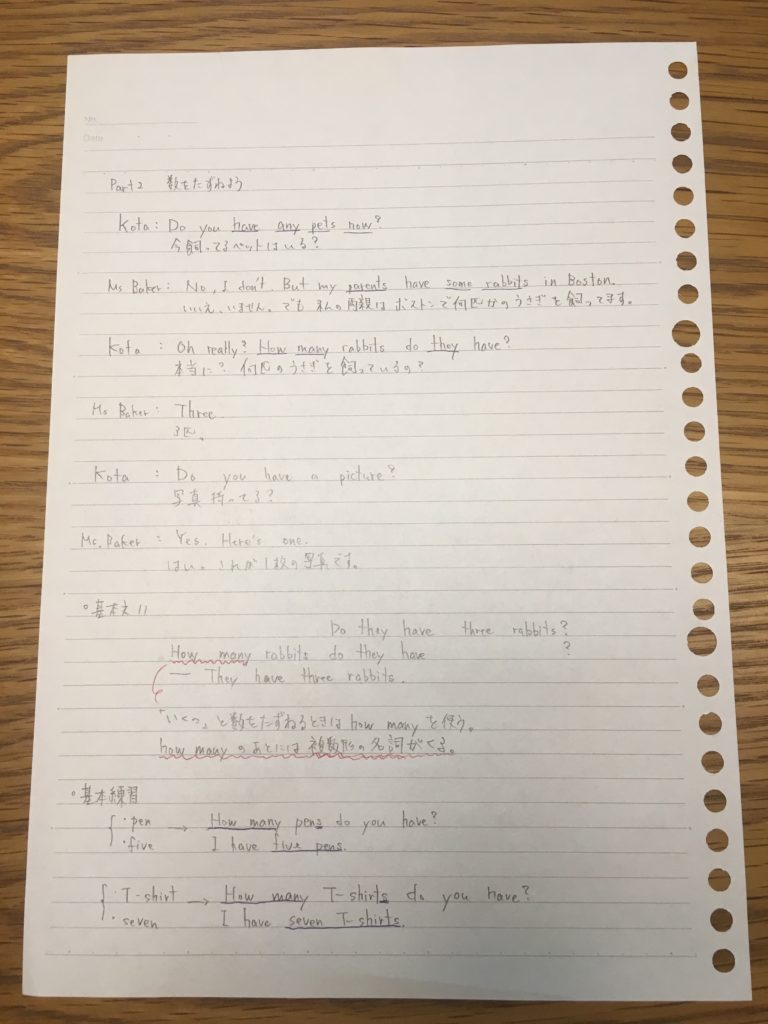 No.
Date
Part2 数をたずねよう
Kota: Do you have any pets now?
今飼ってるペットはいる?
Ms Baker: No, I don't. But my parents have some rabbits in Boston.
いいえ、いません。でも 私の両親は ボストンで何匹かのうさぎを飼ってます。
Kota : Oh really? How many rabbits do they have?
本当に? 何匹のうさぎを飼っているの?
Ms Baker: Three
3匹。
Kota : Do you have a picture?
写真持ってる?
Mc. Baker : Yes. Here's one.
はい。これが1枚の写真です。
・基本文11
Do they have three rabbits?
How many rabbits do they have ?
― They have three rabbits.
「いくつ」と数をたずねるときは how many を使う。
how many のあとには 複数形の名詞がくる。
・基本練習
・pen → How many pens do you have?
・five I have five pens.
・T-shirt → How many T-shirts do you have?
・seven I have seven T-shirts.